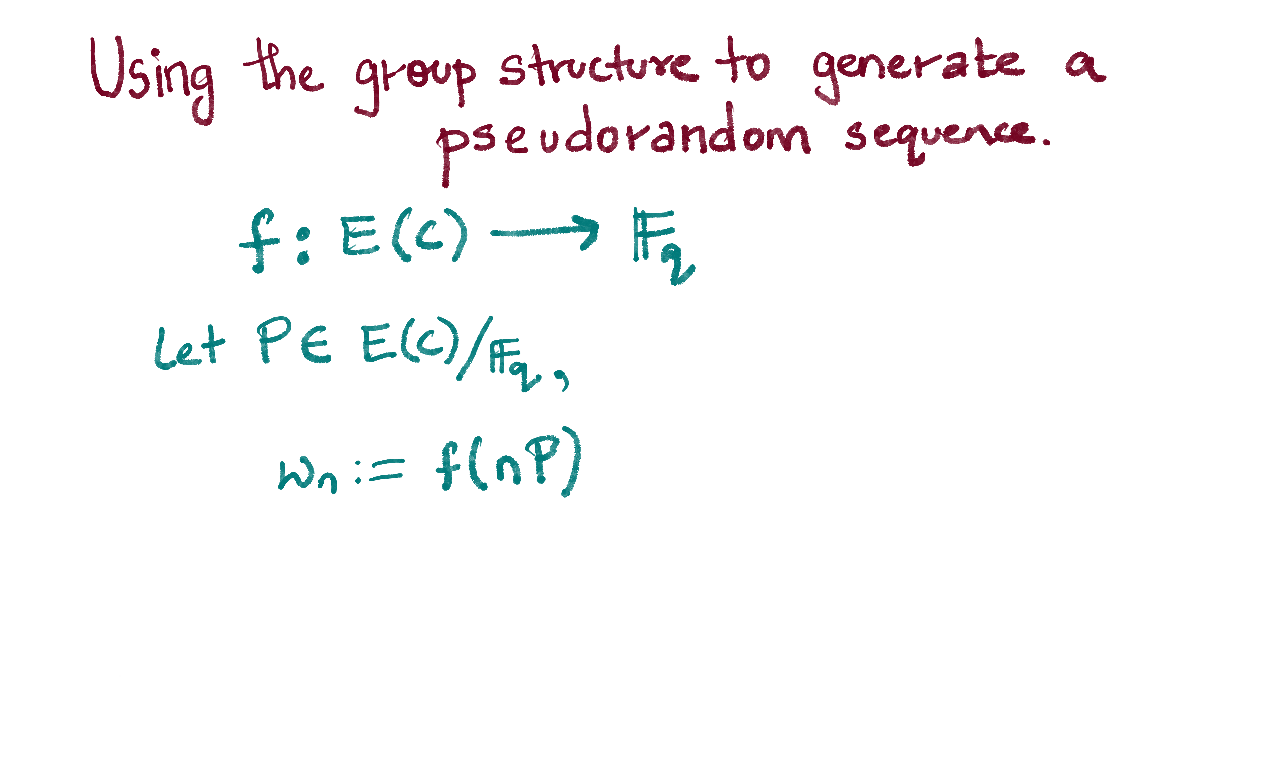 Using the group structure to generate a
pseudorandom sequence.
f : E(C) ⟶ 𝔽q
Let P ∈ E(C)/𝔽q,
wn := f(nP)